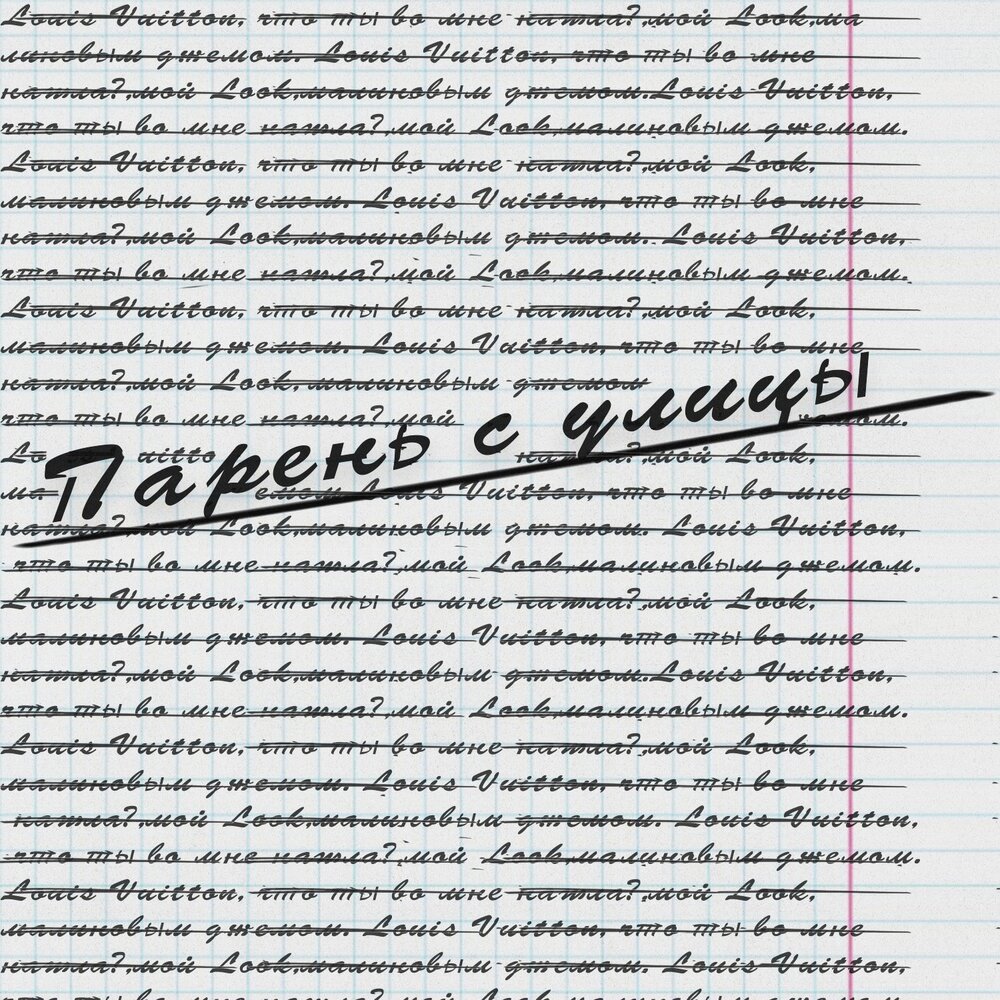 Louis Vuitton, что ты во мне нашла?,мой Look,ма
линовым джемом. Louis Vuitton, что ты во мне
нашла?,мой Look,малиновым джемом.Louis Vuitton,
что ты во мне нашла?,мой Look,малиновым джемом.
Louis Vuitton, что ты во мне нашла?,мой Look,
малиновым джемом. Louis Vuitton, что ты во мне
нашла?,мой Look,малиновым джемом. Louis Vuitton,
что ты во мне нашла?,мой Look,малиновым джемом.
Louis Vuitton, что ты во мне нашла?,мой Look,
малиновым джемом. Louis Vuitton, что ты во мне
нашла?,мой Look, малиновым джемом
что ты во мне нашла?,мой
Парень с улицы
нашла?,мой Look,
Louis Vuitton, что ты во мне
нашла?,мой Look,малиновым джемом. Louis Vuitton,
что ты во мне нашла?,мой Look,малиновым джемом.
Louis Vuitton, что ты во мне нашла?,мой Look,
малиновым джемом. Louis Vuitton, что ты во мне
нашла?,мой Look,малиновым джемом.Louis Vuitton,
что ты во мне нашла?,мой Look,малиновым джемом.
Louis Vuitton, что ты во мне нашла?,мой Look,
малиновым джемом. Louis Vuitton, что ты во мне
нашла?,мой Look,малиновым джемом. Louis Vuitton,
что ты во мне нашла?,мой Look,малиновым джемом.
Louis Vuitton, что ты во мне нашла?,мой Look,
малиновым джемом. Louis Vuitton, что ты во мне
нашла?,мой Look,малиновым джемом. Louis Vuitton,